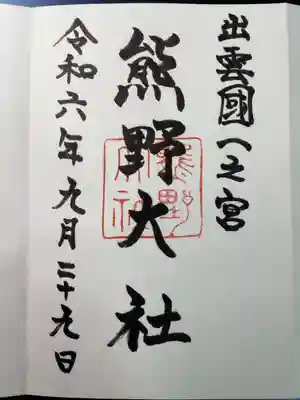 出雲國一之宮
熊野大社
令和六年九月二十九日